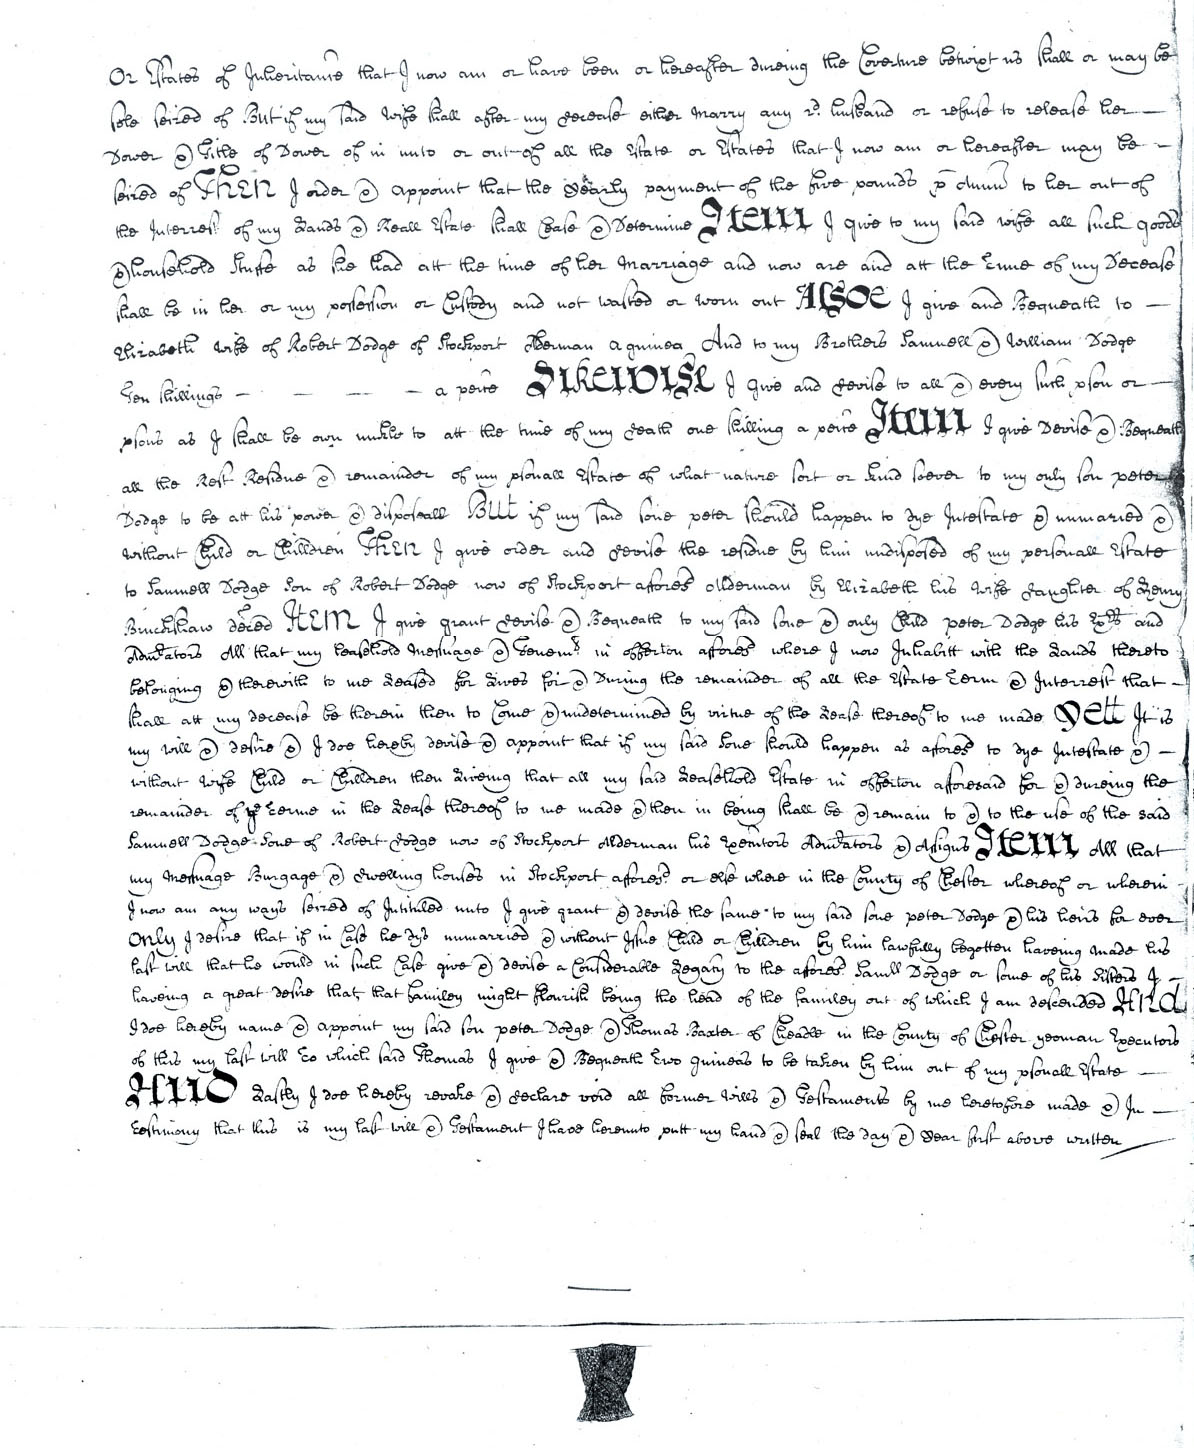 Or Estates of Inheritance that I now am or have been or hereafter dureing the Coverture betwixt us shall or may be
sole seized of But if my said Wife shall after my decease either Marry any 2d. husband or refuse to release her —
Dower & Title of Dower of in unto or out of all the Estate or Estates that I now am or hereafter may be —
seized of Then I order & appoint that the yearly payment of the five pounds p Annum to her out of
the Interrest of my Lands & Reall Estate shall Cease & Determine Item I give to my said wife all such goods
& household stuffe as she had att the time of her Marriage and now are and att the time of my Decease
shall be in her or my possession or Custody and not wasted or worn out Alsoe I give and Bequeath to —
Elizabeth Wife of Robert Dodge of Stockport Alderman a guinea And to my Brothers Samuell & William Dodge
Ten shillings — — — — a peice Likewise I give and devise to all & every such pson or —
psons as I shall be own unckle to att the time of my death one shilling a peice Item I give Devise & Bequeath
all the Rest Residue & remainder of my psonall Estate of what nature sort or kind soever to my only son peter
Dodge to be att his power & disposeall But if my said sone peter should happen to dye Intestate & unmaried &
without Child or Children Then I give order and devise the residue by him undisposed of my personall Estate
to Samuell Dodge Son of Robert Dodge now of Stockport affores'd Alderman by Elizabeth his Wife daughter of Henry
Bruckshaw deced Item I give grant devise & Bequeath to my said sone & only Child peter Dodge his Exrs and
Adm'rators All that my leasehold Messuage & Tenem't in offerton affores'd where I now Inhabitt with the Lands thereto
belonging & therewith to me Leased for Lives for & During the remainder of all the Estate Terme & Interrest that —
shall att my decease be therein then to Come & undetermined by virtue of the Lease thereof to me made Yett It is
my will & desire & I doe hereby devise & appoint that if my said Sone should happen as affores'd to dye Intestate & —
without Wife Child or Children then Liveing that all my said Leasehold Estate in offerton afforesaid for & dureing the
remainder of ye Terme in the Lease thereof to me made & then in being shall be & remain to & to the use of the said
Samuell Dodge Sone of Robert Dodge now of Stockport Alderman his Executors Adm'rators & Assigns Item All that
my Messuage Burgage & dwelling houses in Stockport affores'd or else where in the County of Chester whereof or wherein
I now am any ways seized of Intituled unto I give grant & devise the same to my said sone peter Dodge & his heirs for ever
Only I desire that if in Case he dys unmarried & without Issue Child or Chilldren by him lawfully begotten haveing made his
last will that he would in such Case give & devise a Considerable Legacy to the affores'd Samll Dodge or some of his Sisters I —
haveing a great desire that that familey might flourish being the head of the familey out of which I am descended And
I doe hereby name & appoint my said son peter Dodge & Thomas Baxter of Cheadle in the County of Chester yeoman Executors
of this my last will To which said Thomas I give & Bequeath Two guineas to be taken by him out of my psonall Estate —
And Lastly I doe hereby revoke & declare void all former Wills & Testaments by me heretofore made & In —
Testimony that this is my last will & Testament I have hereunto putt my hand & seal the day & Year first above written